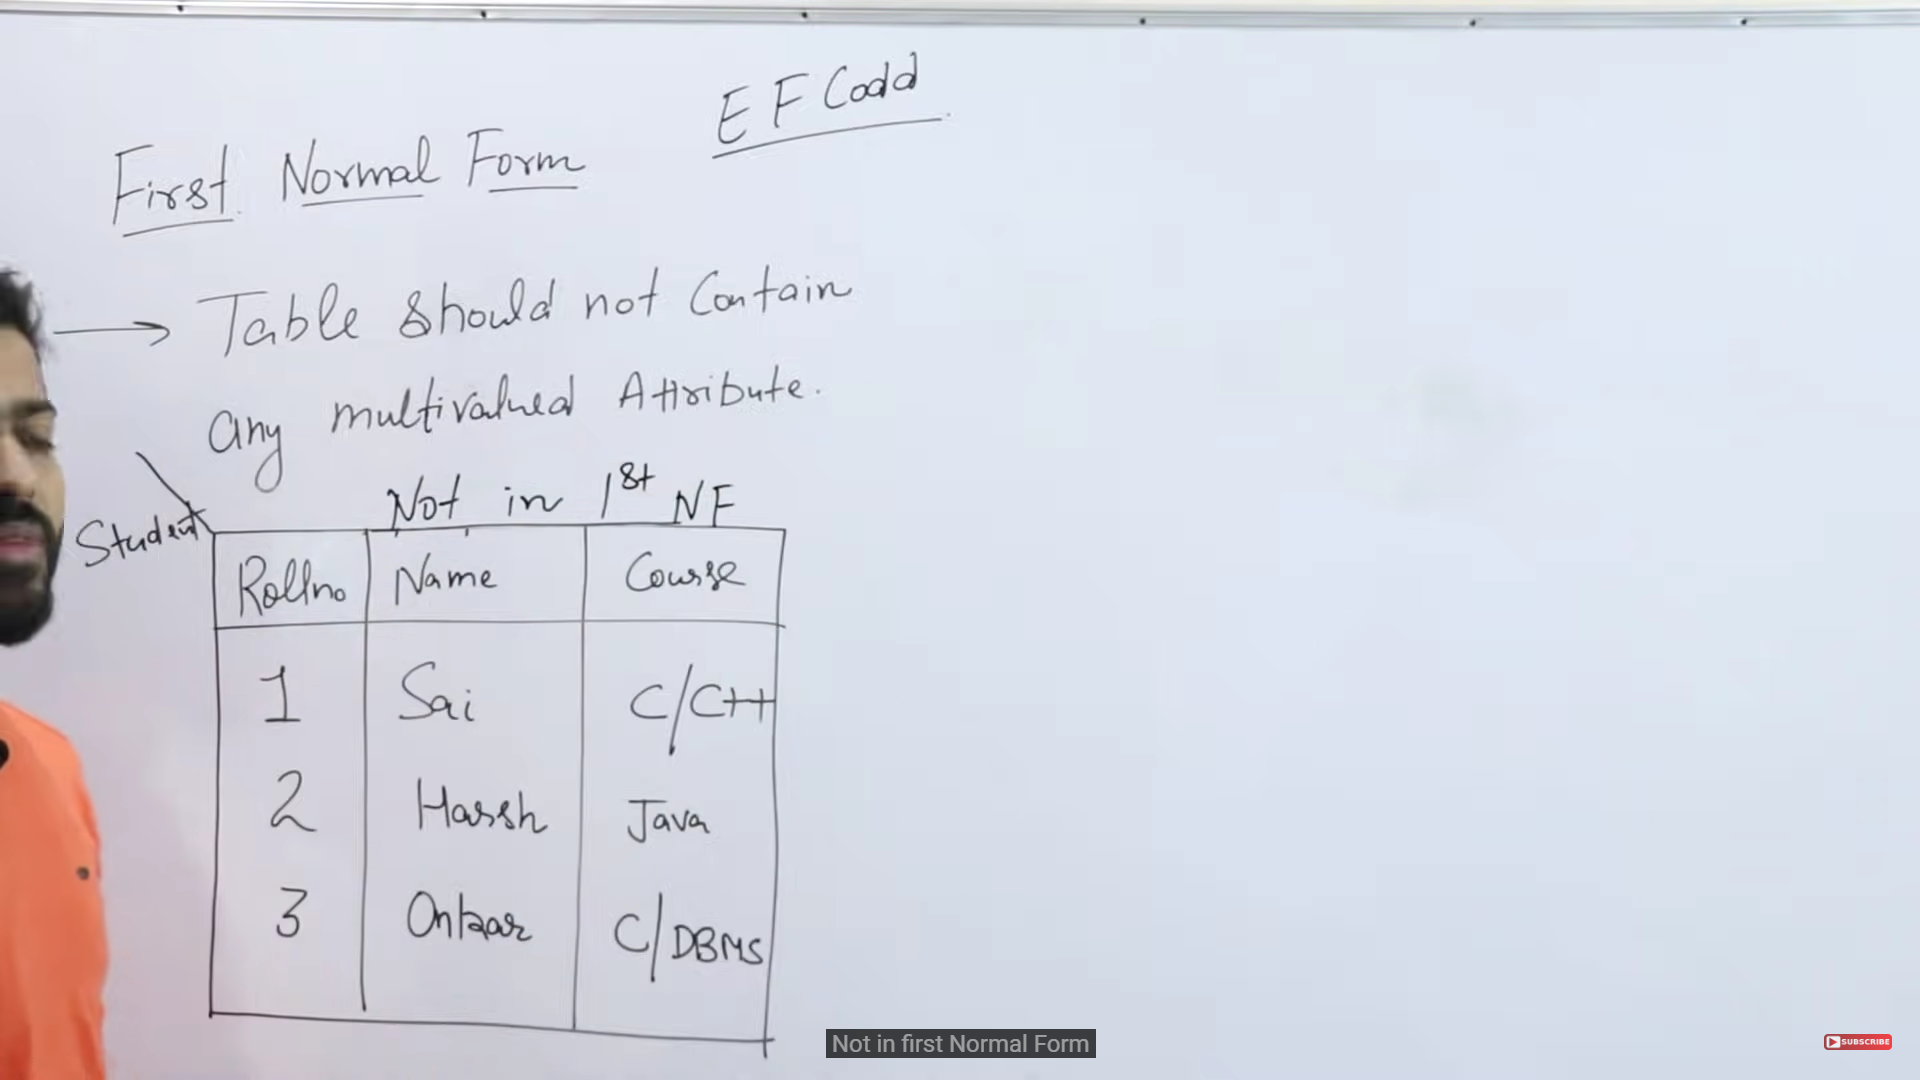 E F Codd
First Normal Form
Table should not Contain
any multivalued Attribute.
Not in 1st NF
Student
Rollno Name Course
1 Sai C/C++
2 Harsh Java
3 Onkar C/DBMS
Not in first Normal Form
SUBSCRIBE